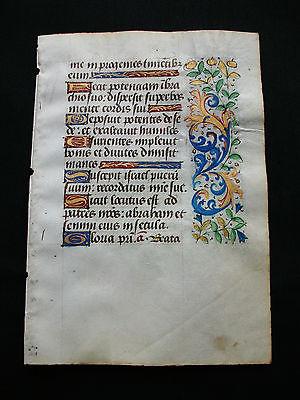 me in progenies timentibus
eum.
Fecit potenciam in bra
chio suo: dispersit superbos
mente cordis sui.
Deposuit potentes de se
de: et exaltavit humiles
Esurientes implevit
bonis et divites dimisit
inanes
Suscepit israel puerum
suum: recordatus mie sue.
Sicut locutus est ad
patres nros: abraham et
semini eius in secula.
Gloria pri. A. Beata